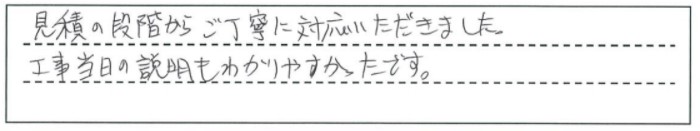 見積の段階からご丁寧に対応いただきました。
工事当日の説明もわかりやすかったです。